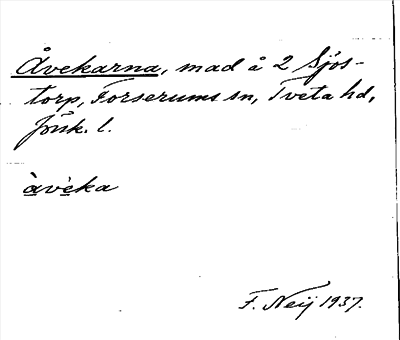 Åvekarna, mad å 2 Sjös-
torp, Forserums sn, Tveta hd,
Jönk. l.
àvèka
F. Neij 1937.